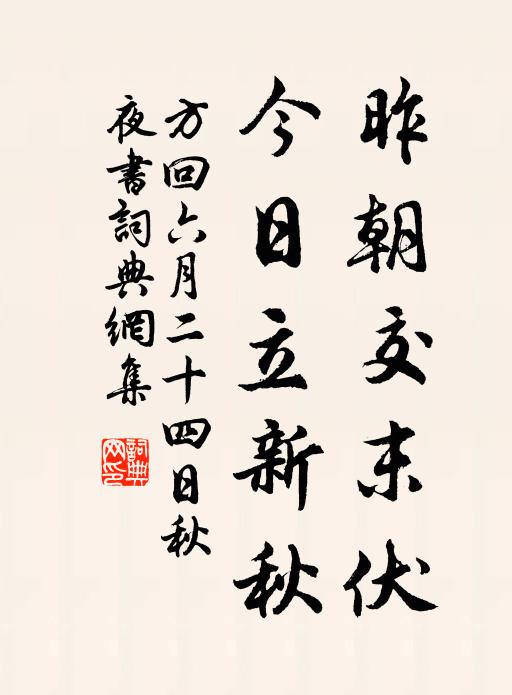 昨朝交末伏
今日立新秋
方回六月二十四日秋
夜書詞典網集
詞典
网印